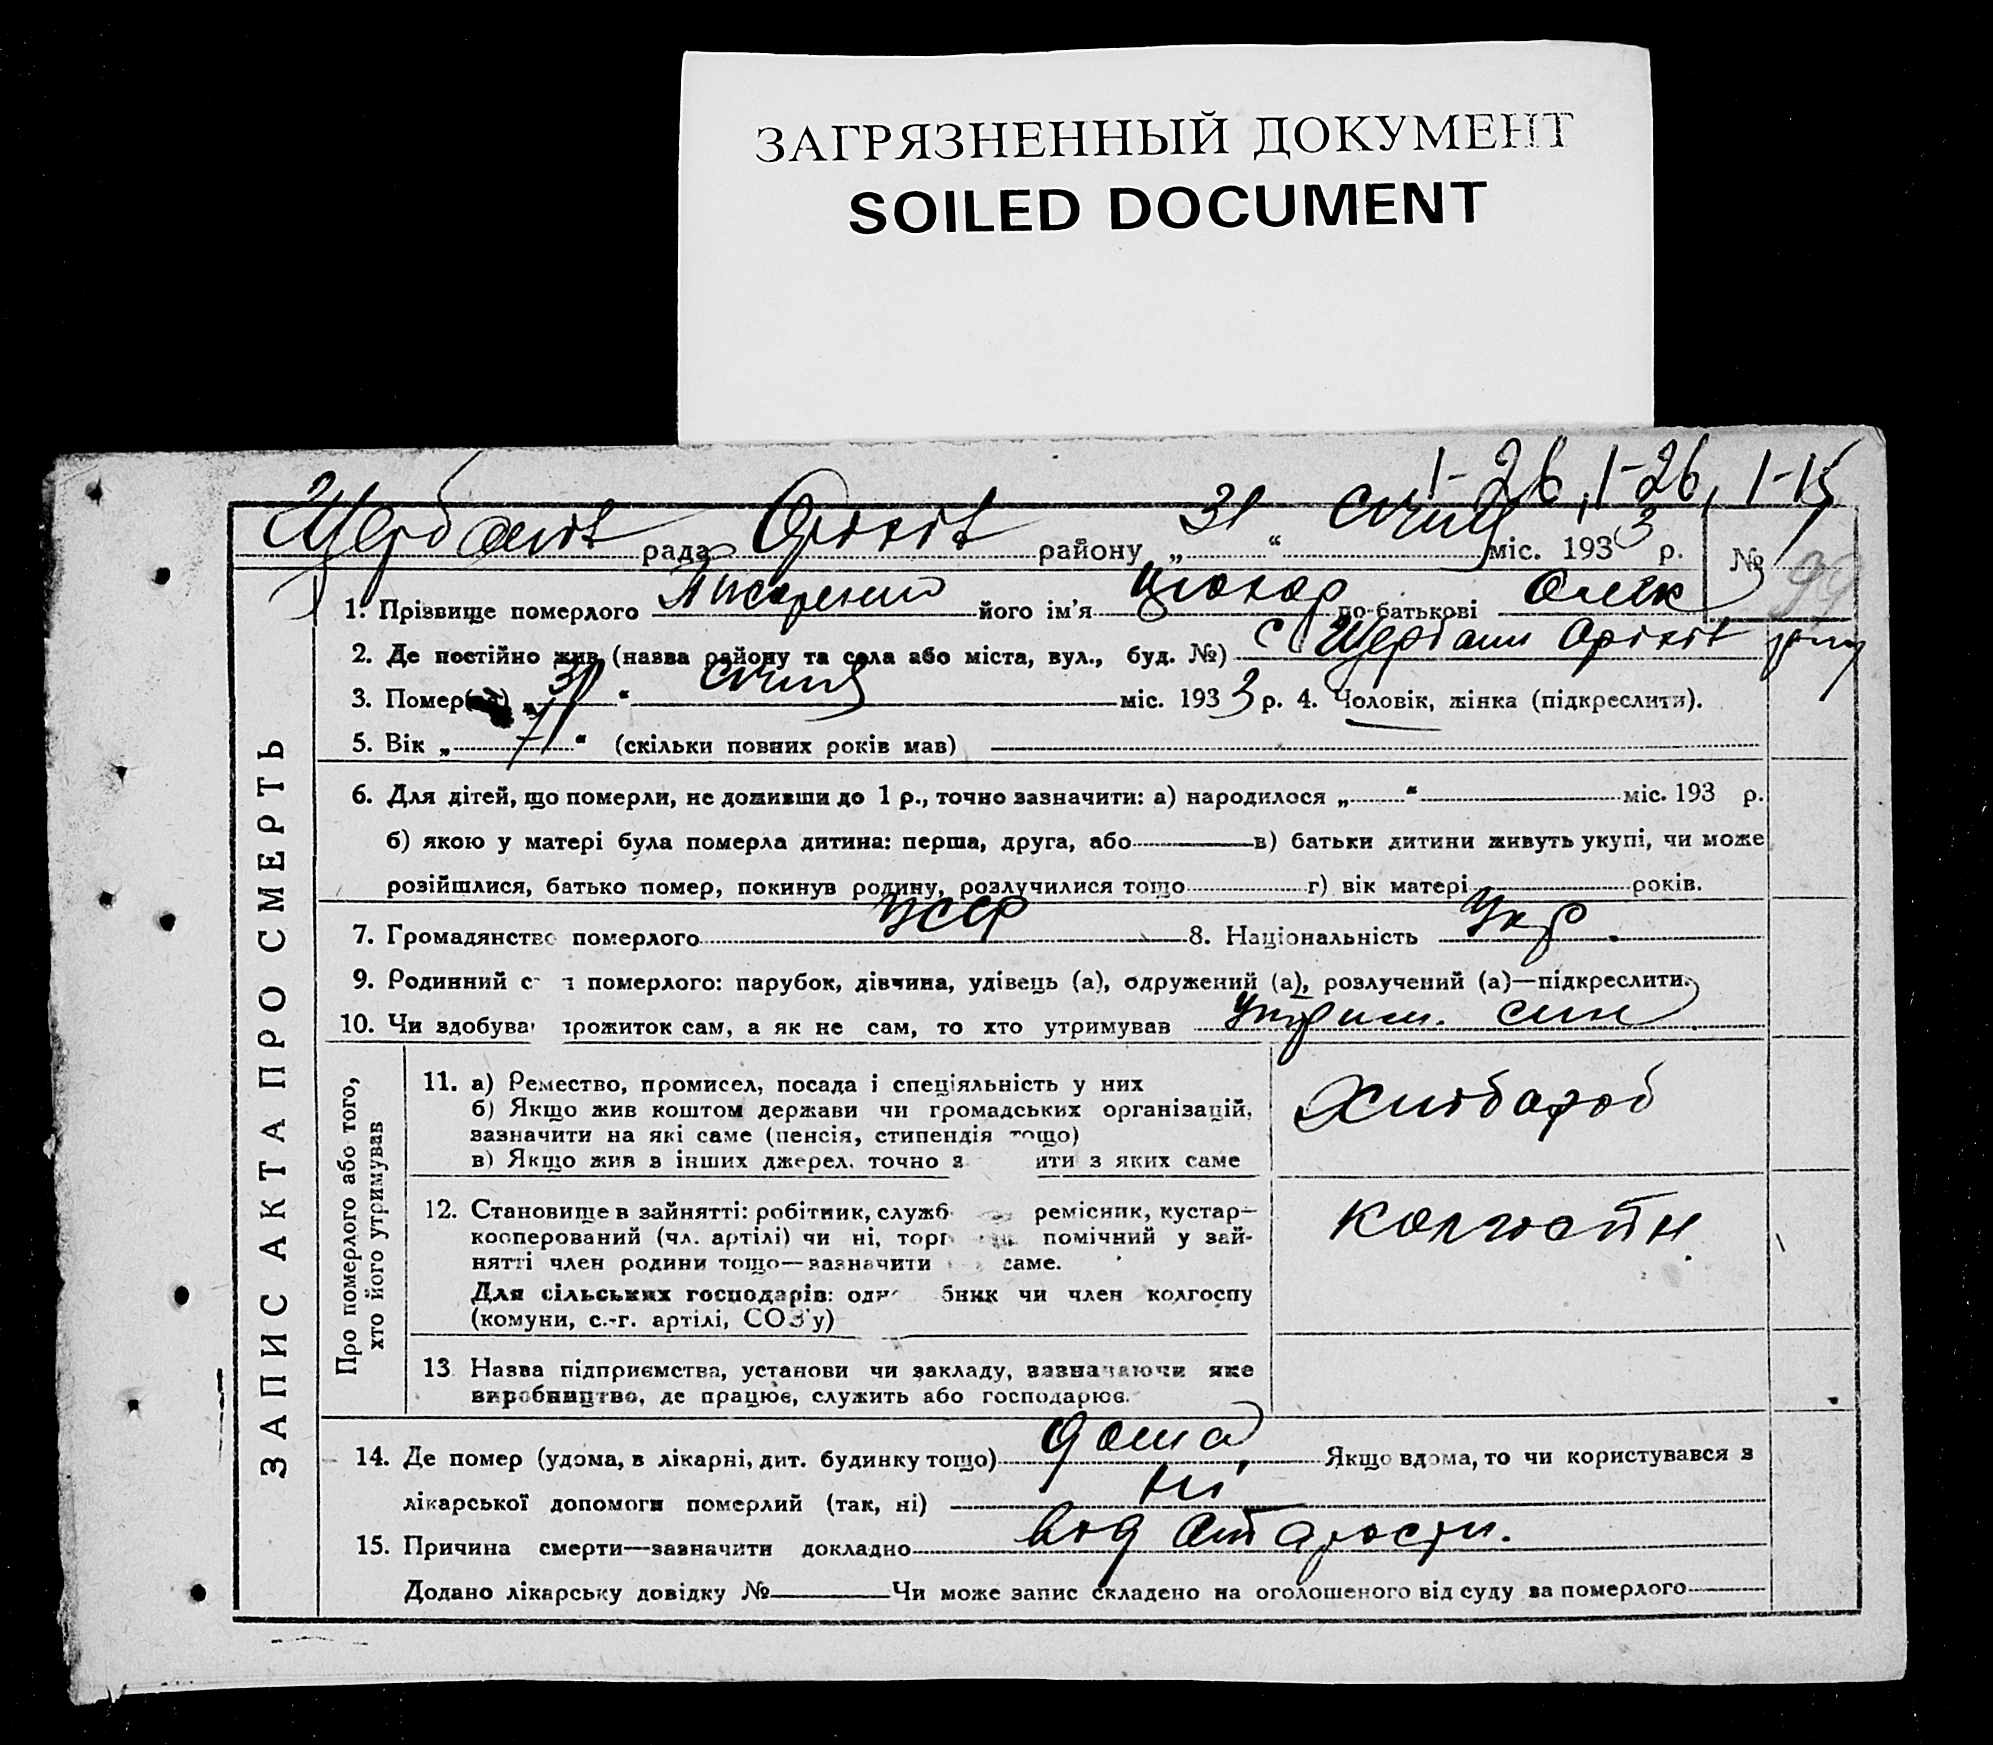 ЗАГРЯЗНЕННЫЙ ДОКУМЕНТ
SOILED DOCUMENT
1-26, 1-26, 1-15
рада район у „31“ січня міс. 1933 р. № 99
1. Прізвище померлого Писаренко його ім'я по-батькові Олек
2. Де постійно жив (назва району та села або міста, вул., буд. №) с.
3. Помер(ла) „31“ січня міс. 1933 р. 4. Чоловік, жінка (підкреслити).
5. Вік „71“ (скільки повних років мав)
6. Для дітей, що померли, не доживши до 1 р., точно зазначити: а) народилося „ “ міс. 193 р.
б) якою у матері була померла дитина: перша, друга, або в) батьки дитини живуть укупі, чи може
розійшлися, батько помер, покинув родину, розлучилися тощо г) вік матері років.
7. Громадянство померлого УСРР 8. Національність Укр.
9. Родинний с н померлого: парубок, дівчина, удівець (а), одружений (а), розлучений (а)—підкреслити.
10. Чи здобува прожиток сам, а як не сам, то хто утримував Утрим. син
ЗАПИС АКТА ПРО СМЕРТЬ
Про померлого або того,
хто його утримував
11. а) Ремество, промисел, посада і спеціяльність у них
б) Якщо жив коштом держави чи громадських організацій,
зазначити на які саме (пенсія, стипендія тощо)
в) Якщо жив з інших джерел, точно з ити з яких саме
Хлібороб
12. Становище в зайнятті: робітник, служб ремісник, кустар—
кооперований (чл. артілі) чи ні, торг помічний у зай-
нятті член родини тощо—зазначити саме.
Для сільських господарів: одн бник чи член колгоспу
(комуни, с.-г. артілі, СОЗ'у)
колгоспн.
13 Назва підприємства, установи чи закладу, зазначаючи яке
виробництво, де працює, служить або господарює.
14. Де помер (удома, в лікарні, дит. будинку тощо) дома Якщо вдома, то чи користувався з
лікарської допомоги померлий (так, ні) Ні
15. Причина смерти—зазначити докладно від старости.
Додано лікарську довідку № Чи може запис складено на оголошеного від суду за померлого